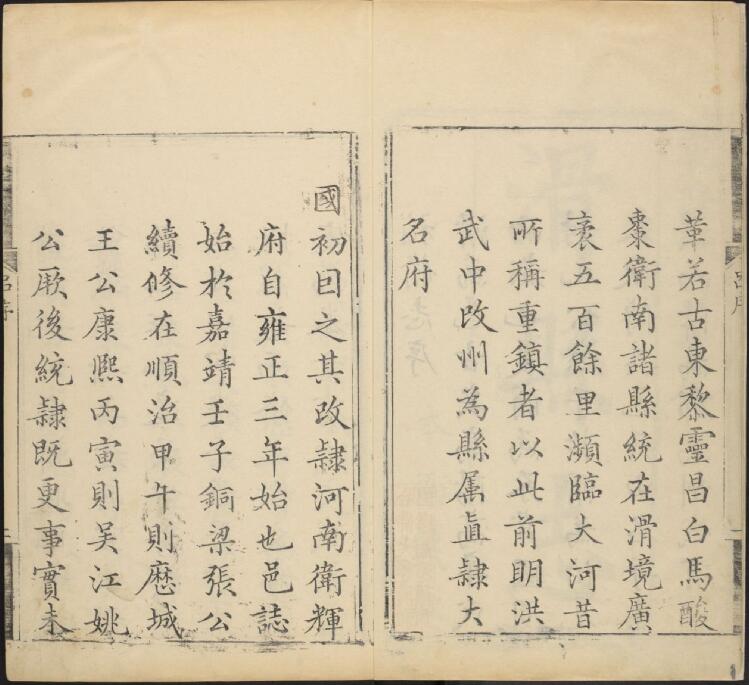 韋若古東黎靈昌白馬酸
棗衛南諸縣統在滑境廣
袤五百餘里瀕臨大河昔
所稱重鎮者以此前明洪
武中改州為縣屬直隸大
名府
國初因之其改隸河南衛輝
府自雍正三年始也邑誌
始於嘉靖壬子銅梁張公
續修在順治甲午則歷城
王公康熙丙寅則吴江姚
公厥後統隸既更事實未